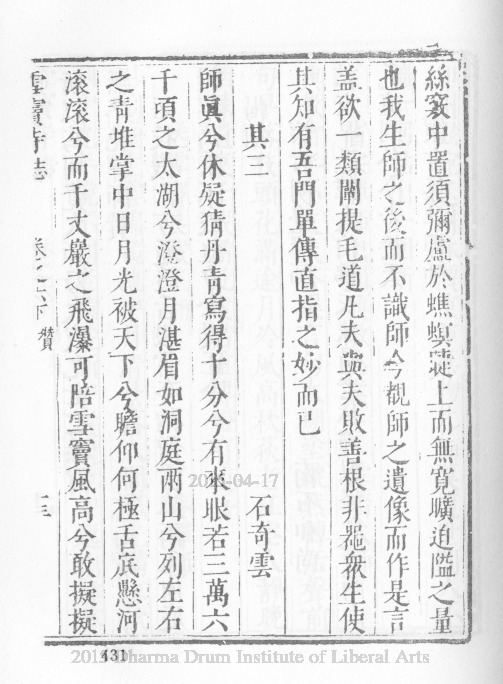 絲竅中置須彌盧於蟭螟睫上而無寬曠迫隘之量
也我生師之後而不識師今覩師之遺像而作是言
盖欲一類闡提毛道凡夫與夫敗善根非器衆生使
其知有吾門單傳直指之妙而已
其三
石奇雲
師眞兮休疑猜丹青寫得十分兮有來眼若三萬六
千頃之太湖兮澄澄月湛眉如洞庭兩山兮列左右
之青堆掌中日月光被天下兮瞻仰何極舌底懸河
滾滾兮而千丈巖之飛瀑可陪雪竇風高兮敢擬擬
雪竇寺誌
卷之六下
讚
431
2013 Dharma Drum Institute of Liberal Arts